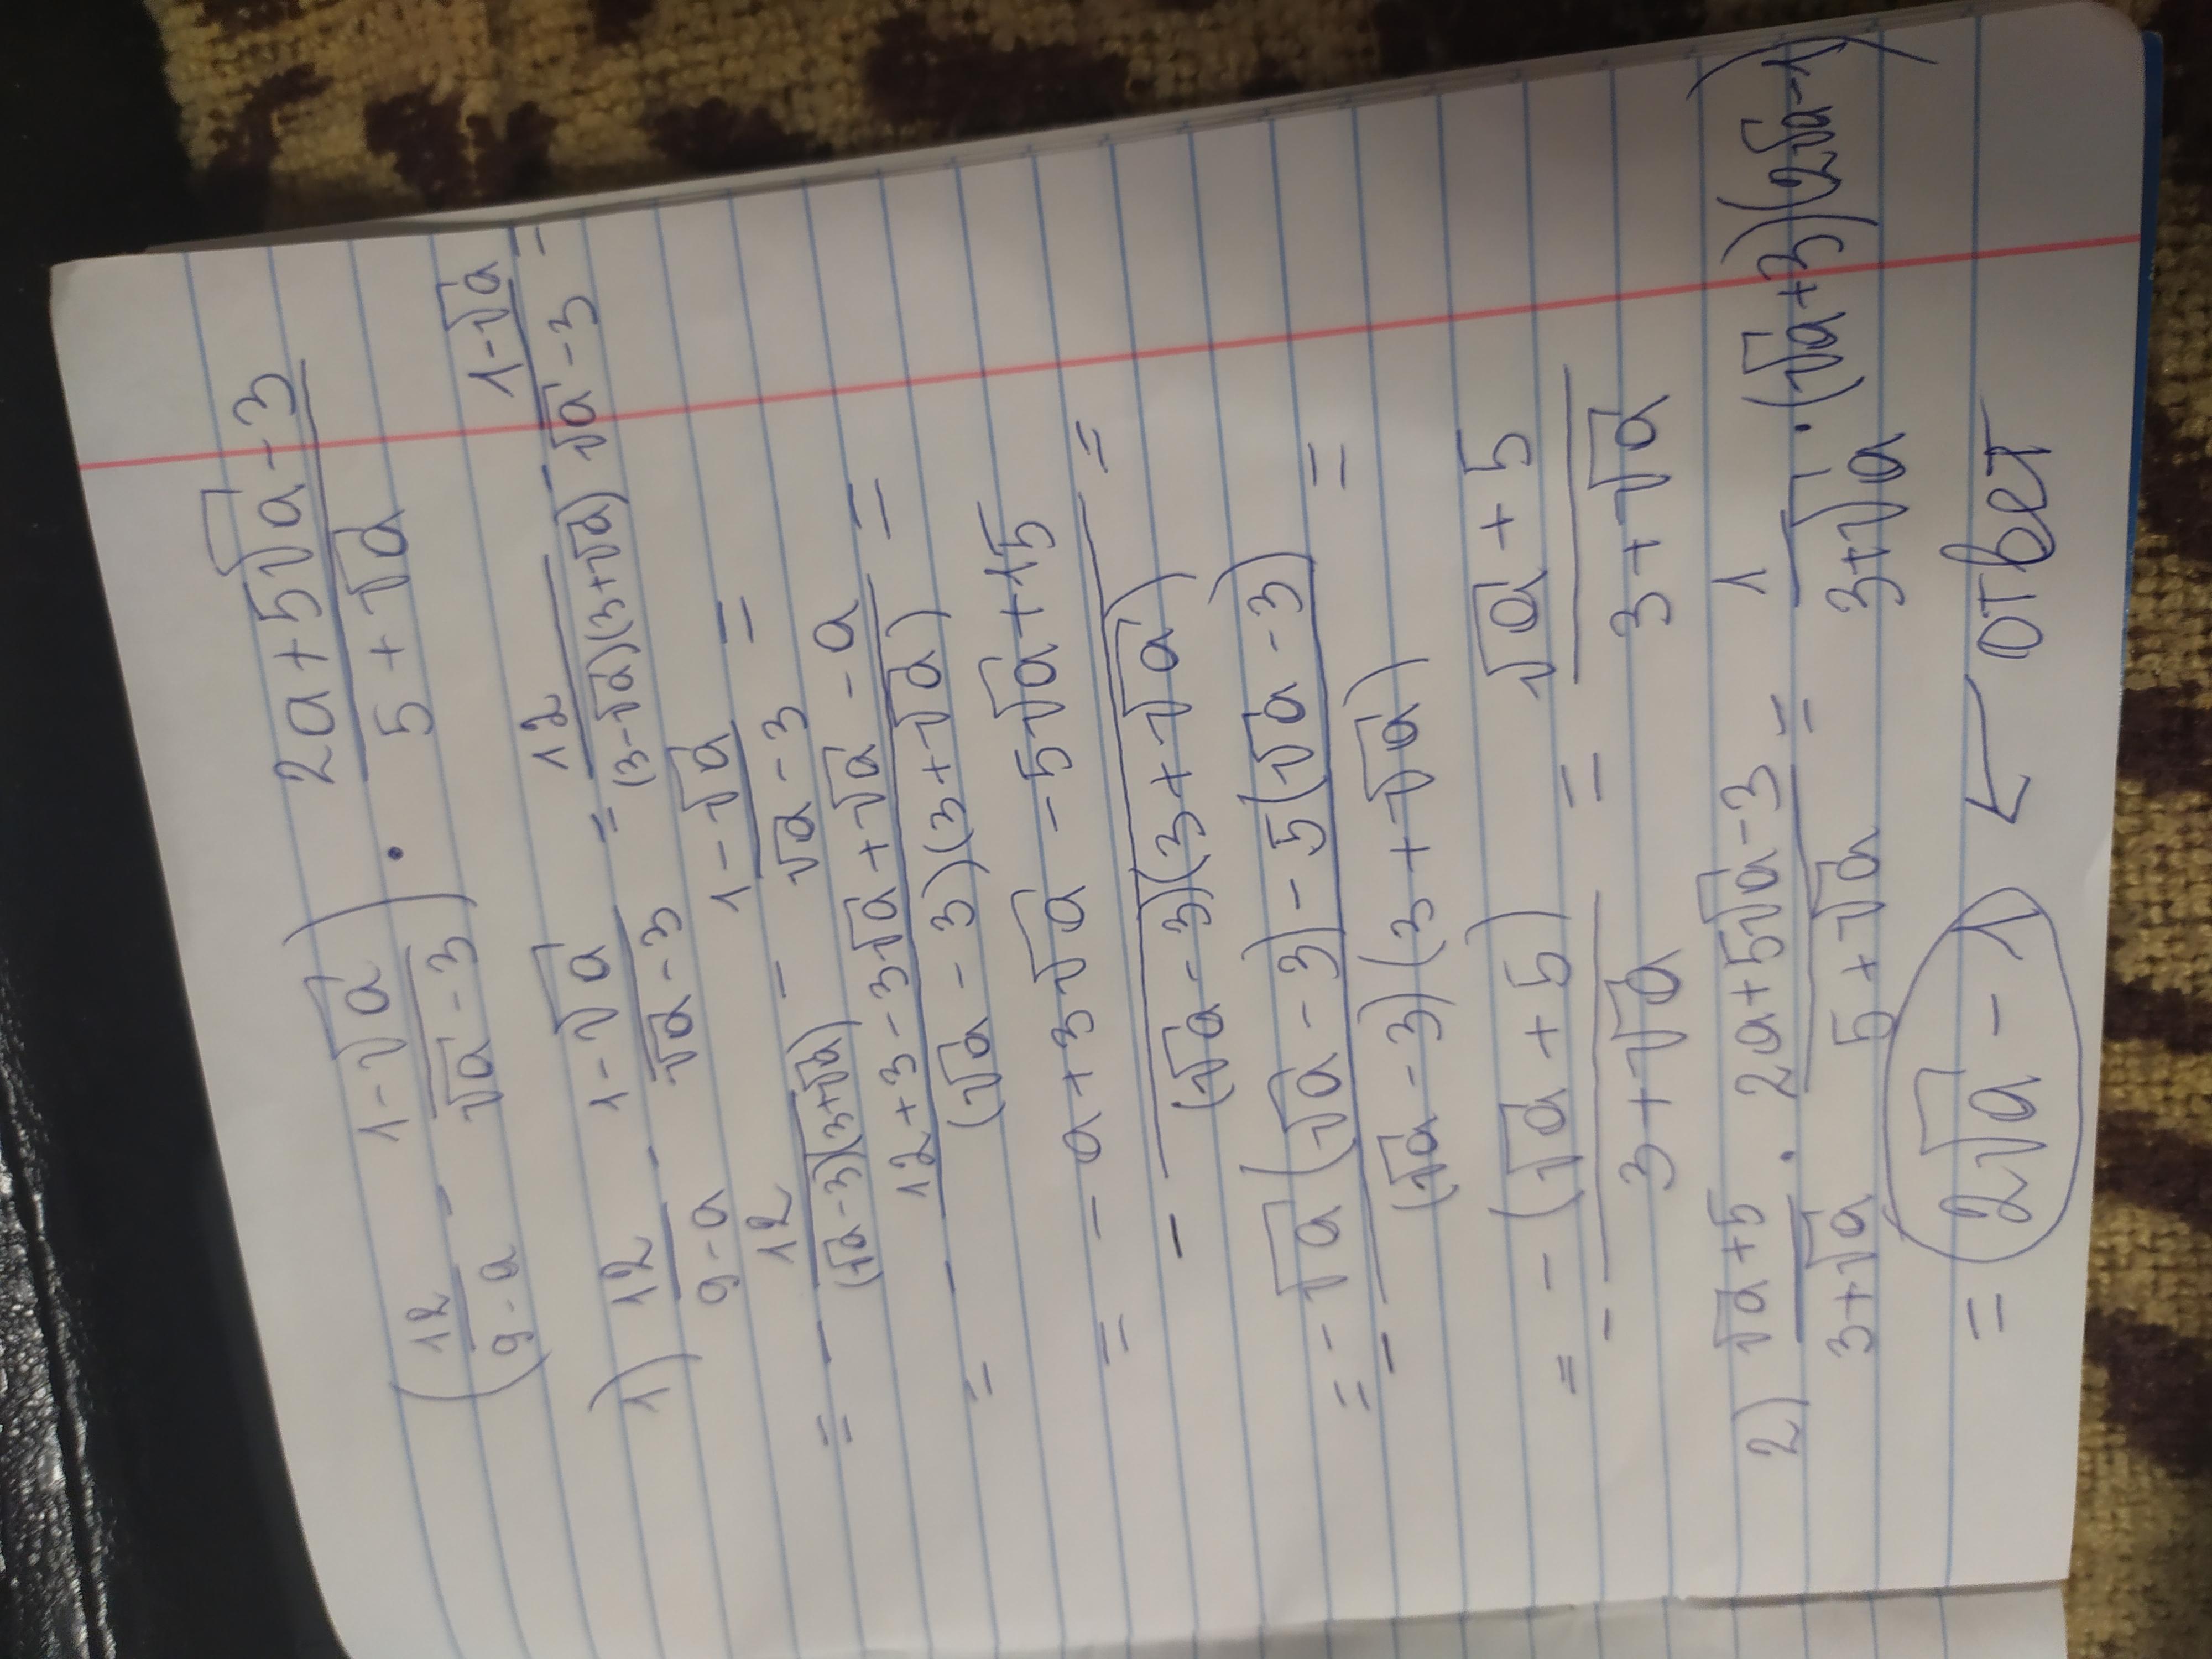 (12/(9-a) - (1-√a)/(√a-3)) · (2a+5√a-3)/(5+√a)
1) 12/(9-a) - (1-√a)/(√a-3) = 12/((3-√a)(3+√a)) - (1-√a)/(√a-3) =
= - 12/((√a-3)(3+√a)) - (1-√a)/(√a-3) =
= - (12+3-3√a+√a-a)/((√a-3)(3+√a)) =
= - (-a+3√a-5√a+15)/((√a-3)(3+√a)) =
= - (-√a(√a-3)-5(√a-3))/((√a-3)(3+√a)) =
= - (-(√a+5))/(3+√a) = (√a+5)/(3+√a)
2) (√a+5)/(3+√a) · (2a+5√a-3)/(5+√a) = 1/(3+√a) · (√a+3)(2√a-1)
= 2√a-1 ← ответ